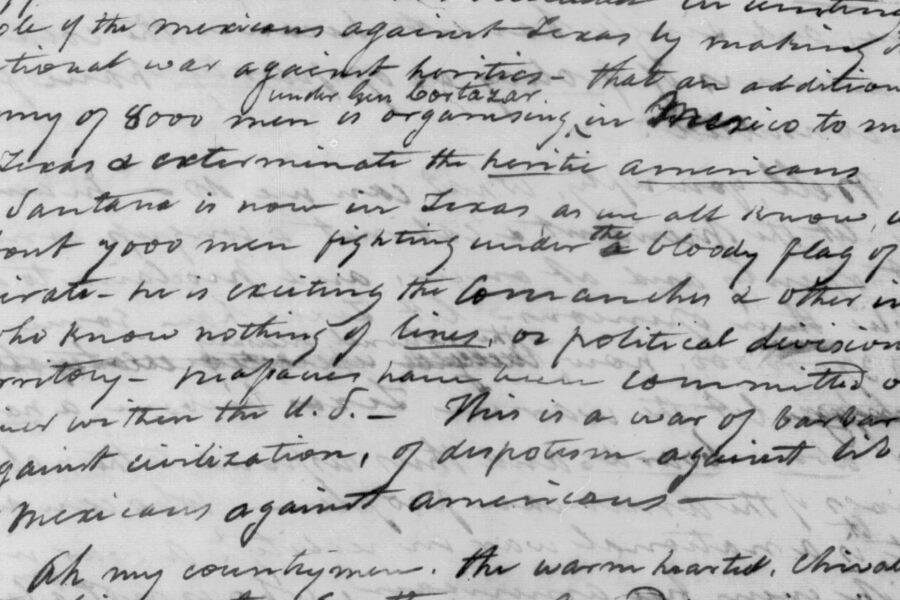 in uniting
ole of the mexicans against Texas by making
tional war against heritics - that an addition
under Gen Cortazar
my of 8000 men is organising, in Mexico to
Texas & exterminate the heritic americans
Santana is now in Texas as we all know,
out 7000 men fighting under the bloody flag of
irate - he is exciting the Comanches & other in
ho know nothing of lines, or political division
rritory - massacres have been committed
within the U. S. - This is a war of barbar
gainst civilization, of despotism against lib
Mexicans against americans -
Ah my countrymen. the warm hearted, chival